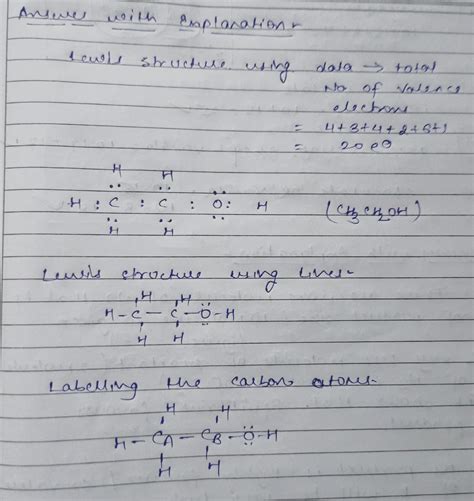 Answer with Explanation-
Lewis structure using data → total
No of valence
electrons
= 4+3+4+2+6+1
= 20 e⊖
H H
H : C : C : O : H (CH3CH2OH)
H H
Lewis structure using lines-
H H
H - C - C - O - H
H H
Labelling the carbon atoms-
H H
H - CA - CB - O - H
H H